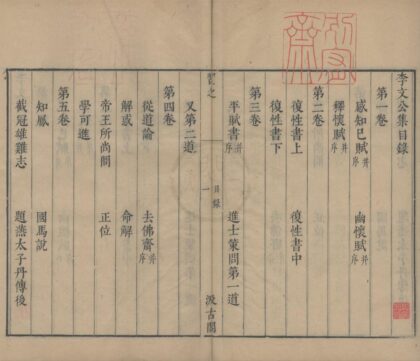 李文公集目錄
第一卷
感知己賦 并序 幽懷賦 并序
釋懷賦 并序
第二卷
復性書上 復性書中
復性書下
第三卷
平賦書 并序 進士策問第一道
習之 目錄 一 汲古閣
又第二道
第四卷
從道論 去佛齋 并序
解惑 命解
帝王所尚問 正位
學可進
第五卷
知鳳 國馬說
截冠雄雞志 題燕太子丹傳後